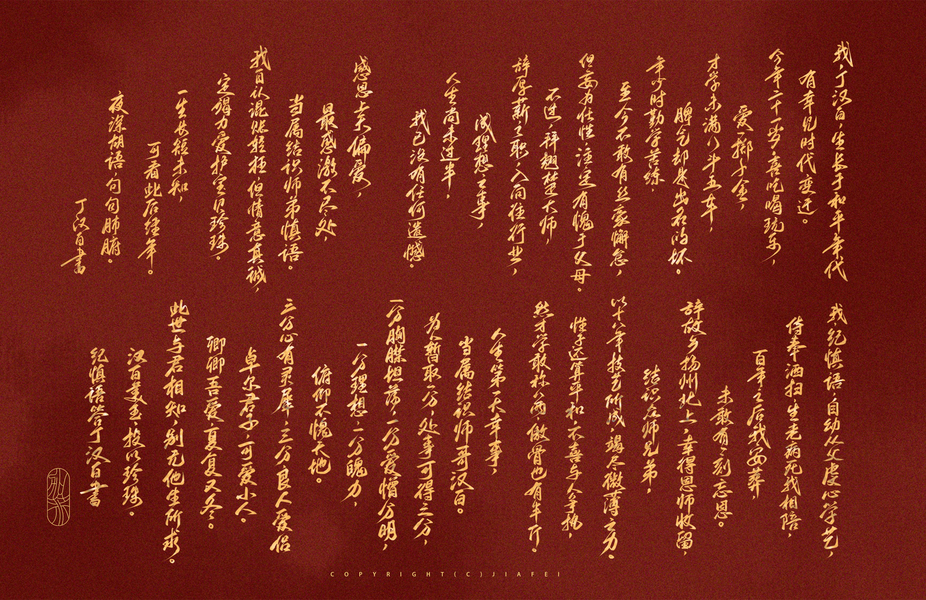 我，丁汉白，生长于和平年代
有幸见时代变迁。
今年二十一岁，喜吃喝玩乐，
爱一掷千金。
才学未满八斗五车，
脾气却是出名的坏。
年少时勤学苦练，
至今不敢有丝毫懈怠，
但妄为任性，注定有愧于父母。
不过，祥楚大师，
辞厚薪之职，入向往行业，
成理想之事，
人生尚未过半，
我已没有任何遗憾。
感恩上天偏爱，
最感激不尽处，
当属结识师弟慎语。
我自认混账轻狂，但情意真诚，
定竭力爱护宝贝珍珠。
一生长短未知，
可看此后经年。
夜深胡语，句句肺腑。
丁汉白书
我，纪慎语，自幼从父虔心学艺，
侍奉洒扫，生老病死我相陪，
百年之后我安葬
未敢有一刻忘恩。
辞故乡扬州北上，幸得恩师收留，
结识众师兄弟，
以十八年技艺所成，竭尽微薄之力。
性子还算平和，不喜与人争执，
然才学敢称八两，傲骨也有半斤。
人生第一大幸事，
当属结识师哥汉白。
为人暂取一分，处事可得三分，
一分胸膛坦荡，一分爱憎分明，
一分理想，一分魄力，
俯仰不愧天地。
三分心有灵犀，三分良人爱侣
卓尔君子，可爱小人。
卿卿吾爱，夏复又冬。
此世与君相知，别无他生所求。
汉白美玉，枚以珍珠。
纪慎语答丁汉白书
COPYRIGHT(C)JIAFEI